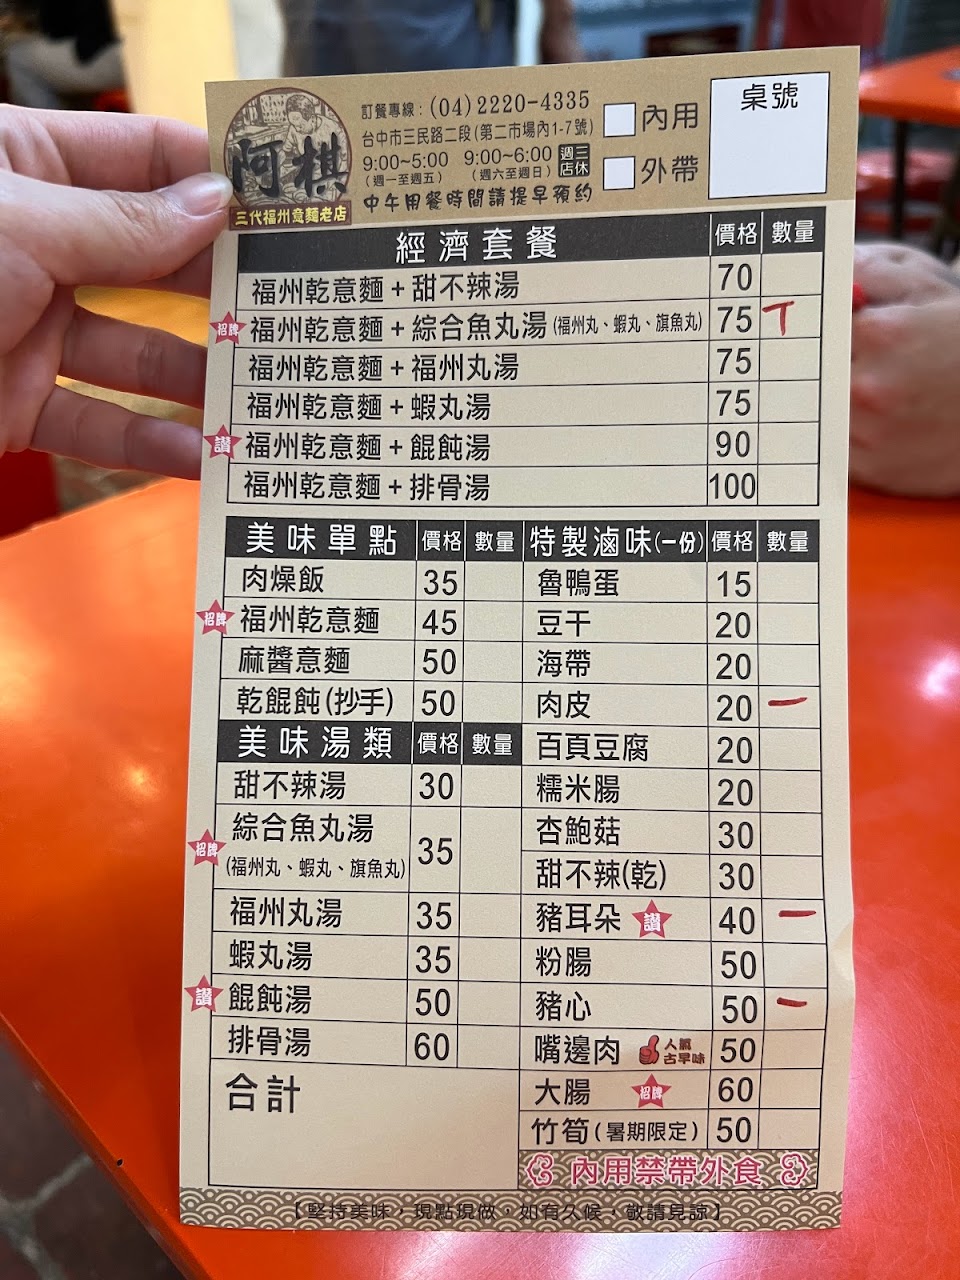 阿棋
三代福州意麵老店
訂餐專線：(04)2220-4335
台中市三民路二段(第二市場內1-7號)
9:00~5:00 9:00~6:00 週三店休
(週一至週五) (週六至週日)
中午用餐時間請提早預約
內用
外帶
桌號
經濟套餐 價格 數量
福州乾意麵+甜不辣湯 70
招牌 福州乾意麵+綜合魚丸湯(福州丸、蝦丸、旗魚丸) 75 丅
福州乾意麵+福州丸湯 75
福州乾意麵+蝦丸湯 75
讚 福州乾意麵+餛飩湯 90
福州乾意麵+排骨湯 100
美味單點 價格 數量
肉燥飯 35
招牌 福州乾意麵 45
麻醬意麵 50
乾餛飩(抄手) 50
美味湯類 價格 數量
甜不辣湯 30
招牌 綜合魚丸湯 35
(福州丸、蝦丸、旗魚丸)
福州丸湯 35
蝦丸湯 35
讚 餛飩湯 50
排骨湯 60
合計
特製滷味(一份) 價格 數量
魯鴨蛋 15
豆干 20
海帶 20
肉皮 20 一
百頁豆腐 20
糯米腸 20
杏鮑菇 30
甜不辣(乾) 30
豬耳朵 讚 40 一
粉腸 50
豬心 50 一
嘴邊肉 人氣古早味 50
大腸 招牌 60
竹筍(暑期限定) 50
內用禁帶外食
【堅持美味，現點現做，如有久候，敬請見諒】